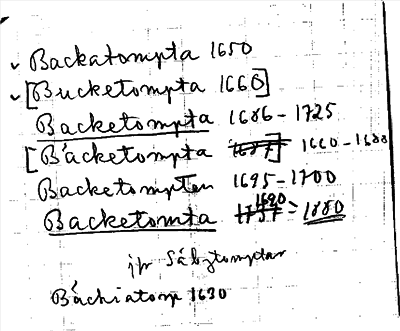 ✓ Backatompta 1650
✓ [Bucketompta 1660]
Backetompta 1686-1725
[Backetompta 1687] 1660-1688
Backetompten 1695-1700
Backetomta 1737 1690 = 1880
jfr Säbytomptar
Bächiatomp 1630